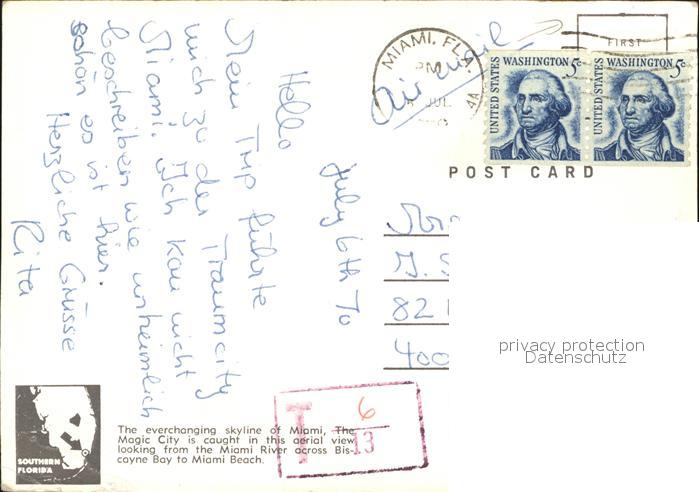 July 6th 70
Hello
Mein Trip führte
mich zu der Traumcity
Miami. Ich kan nicht
beschreiben wie unheimlich
schön es ist hier.
Herzliche Grüsse
Rita
MIAMI, FLA.
PM
JUL
Air mail
FIRST
UNITED STATES WASHINGTON 5c
UNITED STATES WASHINGTON 5c
POST CARD
82
400
privacy protection
Datenschutz
T 6
13
SOUTHERN
FLORIDA
The everchanging skyline of Miami, The
Magic City is caught in this aerial view
looking from the Miami River across Bis-
cayne Bay to Miami Beach.